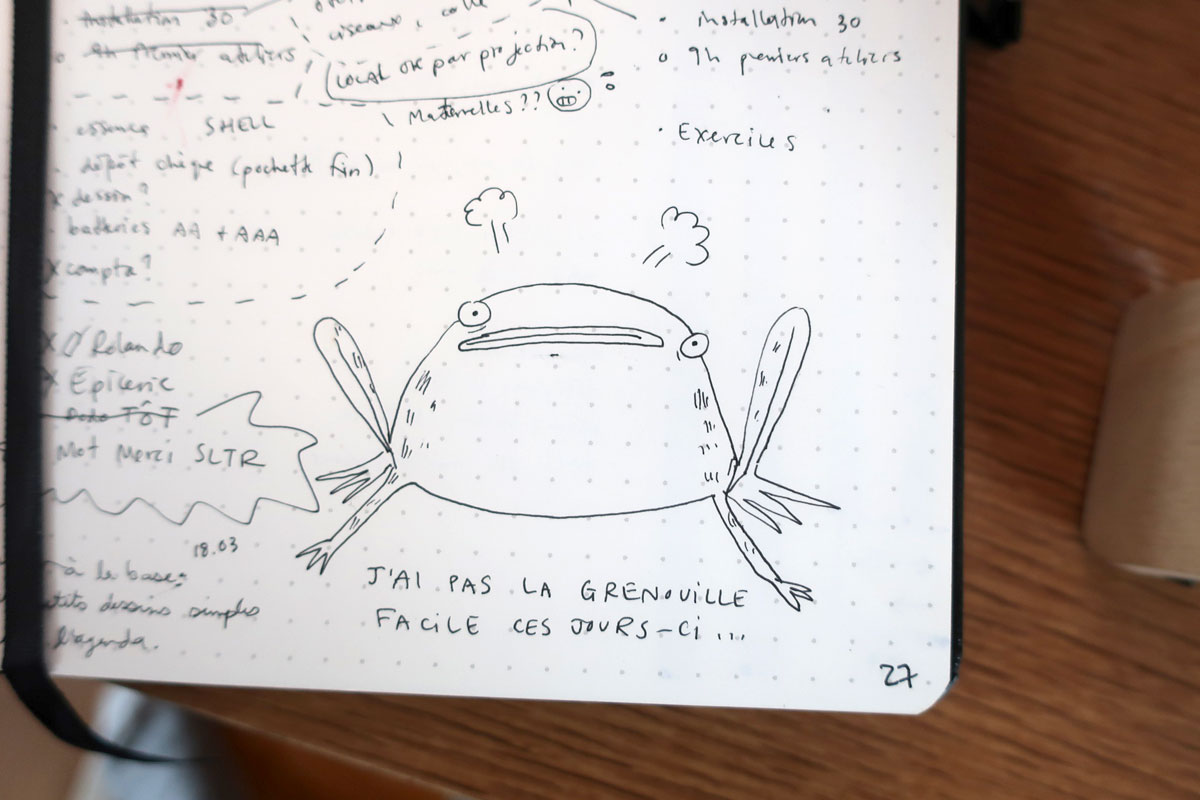 installation 30
9h premiers ateliers
ciseaux, colle
local ok par projection?
Maternelles??
essence SHELL
dépôt chèque (pochette fin)
x dessin?
batteries AA + AAA
x compta?
x O'Rolando
x Épicerie
Dodo TÔT
Mot Merci SLTR
18.03
à la base:
petits dessins simples
l'agenda.
• installation 30
o 9h premiers ateliers
• Exercices
J'AI PAS LA GRENOUILLE
FACILE CES JOURS-CI...
27